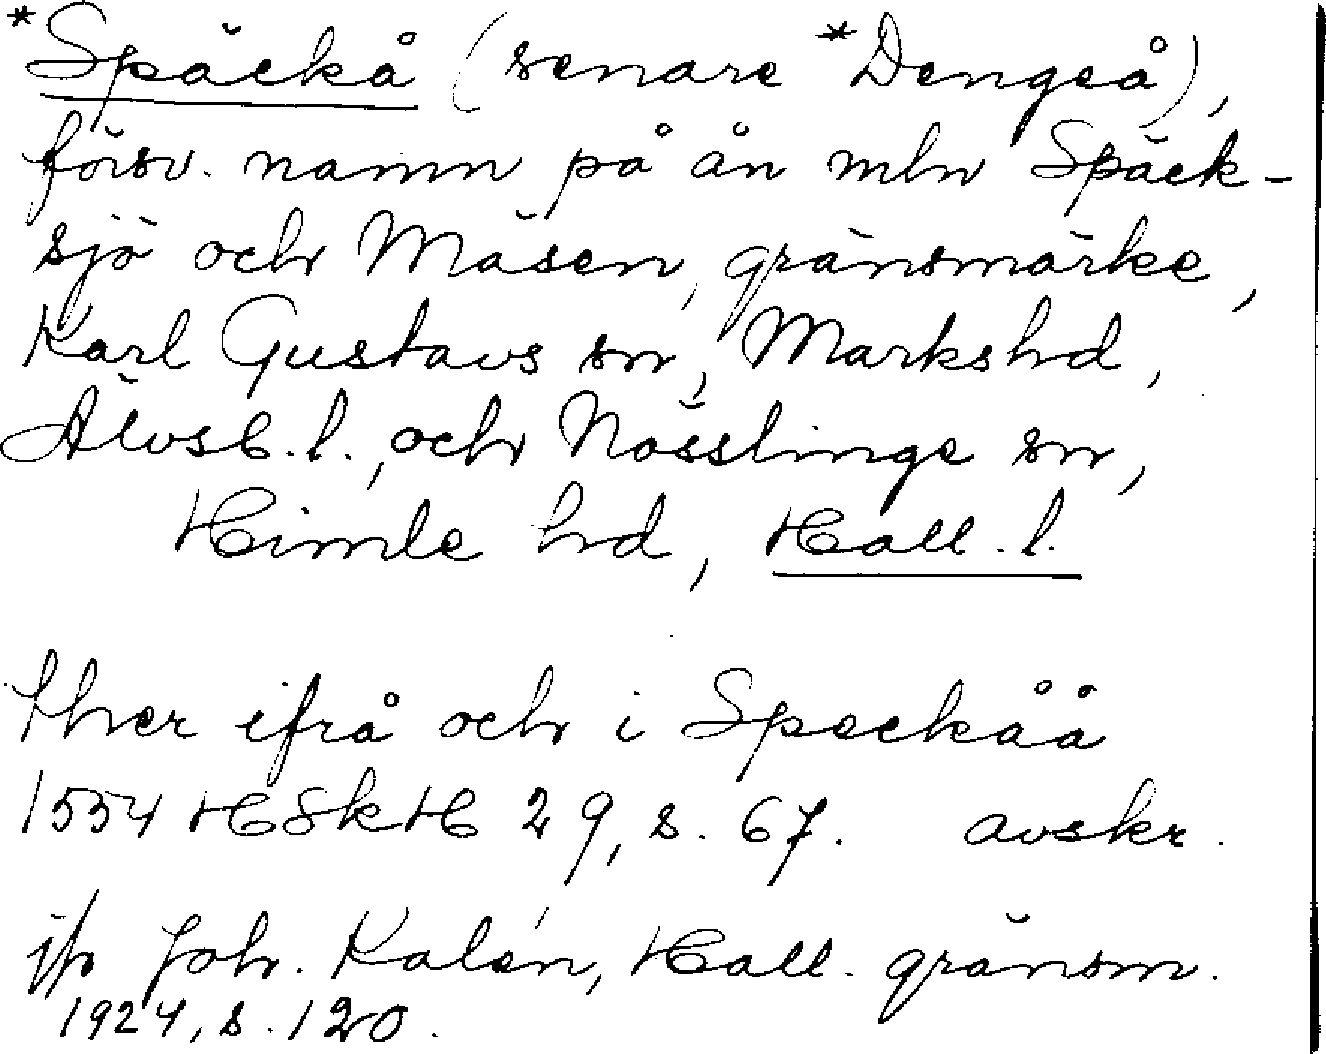 *Späckå (senare *Dengeå),
försv. namn på ån mln Späck-
sjö och Mäsen, gränsmärke,
Karl Gustavs sn, Markshd,
Älvsb. l., och Nösslinge sn,
Himle hd, Hall. l.
ther ifrå och i Speckåå
1554 HSkH 29, s. 67. avskr.
jfr Joh. Kalén, Hall. gränsm.
1924, s. 120.